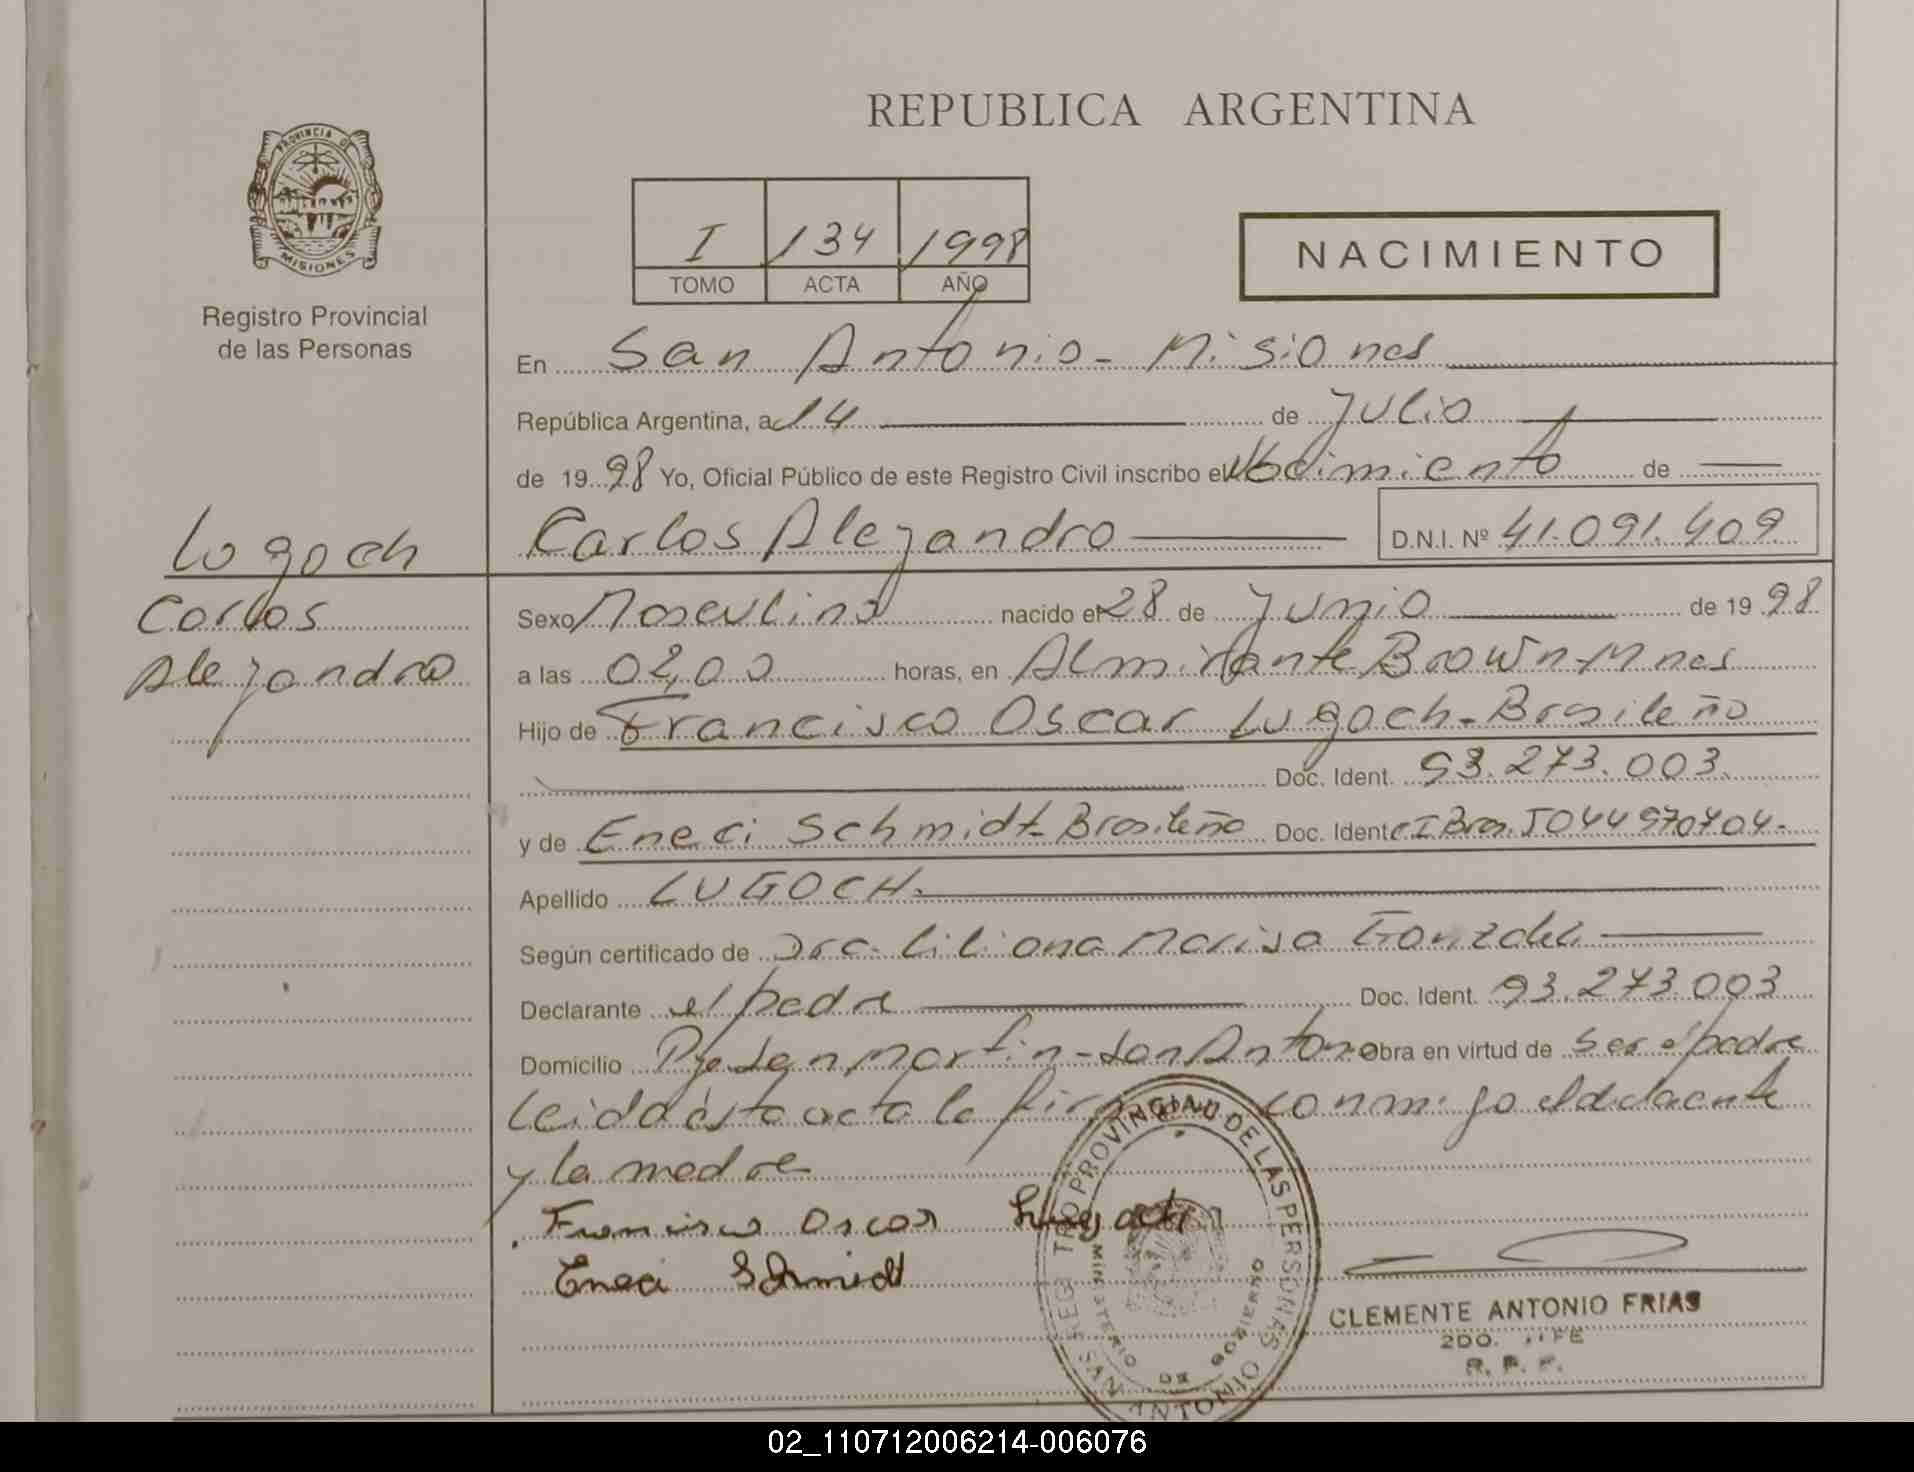 REPUBLICA ARGENTINA
PROVINCIA DE MISIONES
Registro Provincial
de las Personas
I 134 1998
TOMO ACTA AÑO
NACIMIENTO
En San Antonio - Misiones
República Argentina, a 14 de Julio
de 1998 Yo, Oficial Público de este Registro Civil inscribo el Nacimiento de
Carlos Alejandro D.N.I. Nº 41.091.409
Lugoch
Carlos
Alejandro
Sexo Masculino nacido el 28 de Junio de 1998
a las 02,00 horas, en Almirante Brown - Mnes
Hijo de Francisco Oscar Lugoch - Brasileño
Doc. Ident. 93.273.003
y de Eneci Schmidt - Brasileño Doc. Ident CI Bras. 5044970704-
Apellido LUGOCH.
Según certificado de Dra. Liliana Marisa Gonzalez
Declarante el padre Doc. Ident. 93.273.003
Domicilio Pje San Martin - San Antonio obra en virtud de ser el padre
Leida ésta acta la conmigo el declarante
y la madre
Francisco Oscar Lugoch
Eneci Schmidt
REGISTRO PROVINCIAL DE LAS PERSONAS
MINISTERIO DE GOBIERNO
SAN ANTONIO
CLEMENTE ANTONIO FRIAS
2DO. JEFE
R. P. P.
02_110712006214-006076